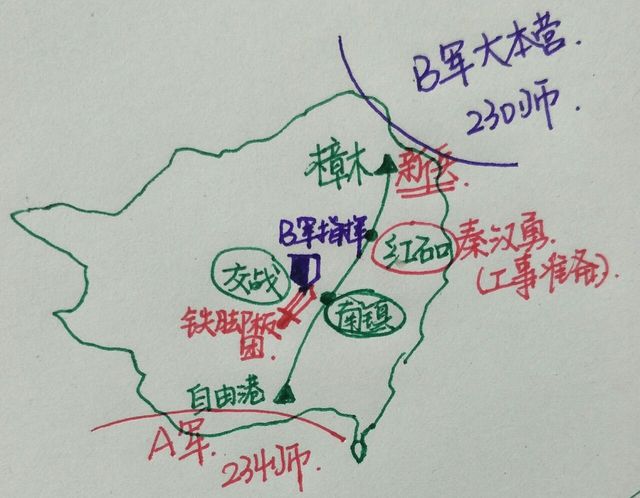 B军大本营.
230师.
樟木
新兵.
B军指挥
红石口
秦汉勇.
(工事准备).
交战
南镇
铁脚板
团.
自由港
A军.
234师.